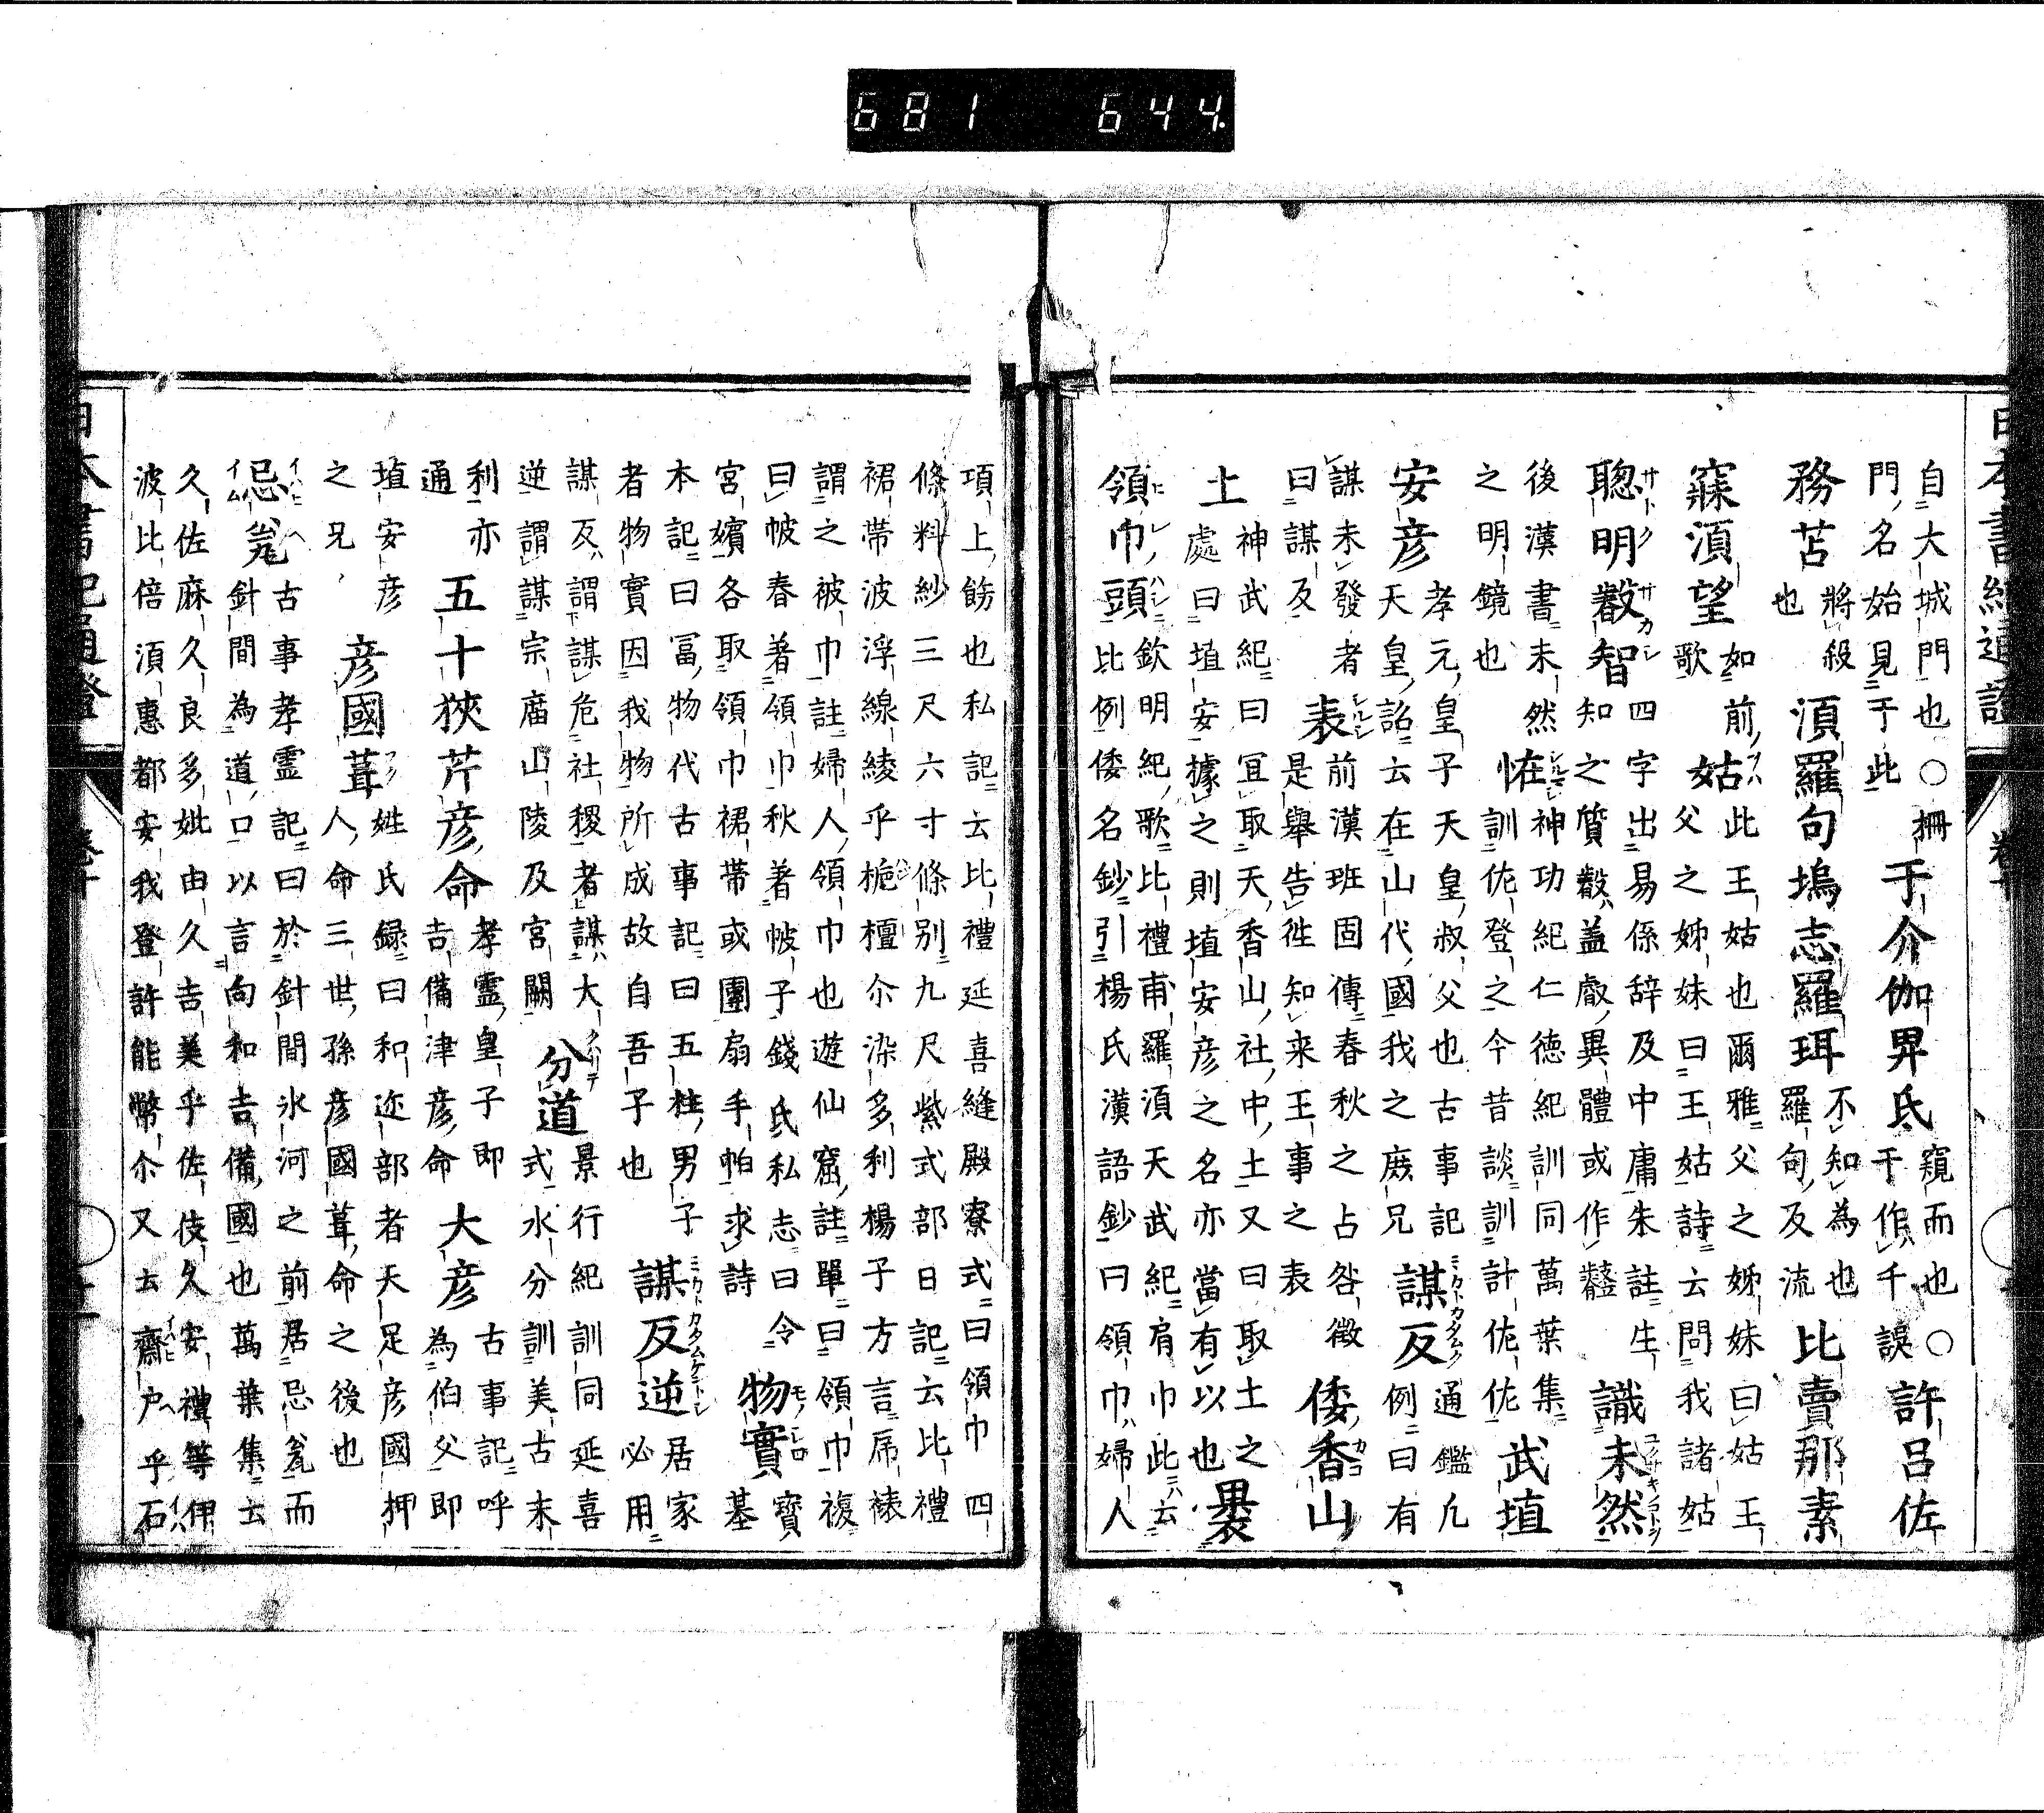 日本書紀通證
自大城門也○柵
門名始見于此
于介伽卑氐
窺而也○
于作千誤
許呂佐
務苫
將殺
也
須羅句塢志羅珥
不知為也
羅句反流
比賣那素
寐須望
如前
歌
姑
此王姑也爾雅父之姊妹曰姑王
父之姊妹曰王姑詩云問我諸姑
聰明叡智
四字出易係辞及中庸朱註生
知之質叡蓋叡異體或作壡
識未然
後漢書未然
之明鏡也
恠
神功紀仁徳紀訓同萬葉集
訓佐登之今昔談訓計佐佐
武埴
安彦
孝元皇子天皇叔父也古事記
天皇詔云在山代國我之庶兄
謀反
通鑑凡
例曰有
謀未發者
曰謀反
表
前漢班固傳春秋之占咎徴
是舉告徃知来王事之表
倭香山
土
神武紀曰冝取天香山社中土又曰取土之
處曰埴安據之則埴安彦之名亦當有以也
裹
領巾頭
欽明紀歌比禮甫羅須天武紀肩巾此云
比例倭名鈔引楊氏漢語鈔曰領巾婦人
項上餝也私記云比禮延喜縫殿寮式曰領巾四
條料紗三尺六寸條別九尺紫式部日記云比禮
裙帯波浮線綾乎梔檀尒染多利楊子方言帍裱
謂之被巾註婦人領巾也遊仙窟註單曰領巾複
曰帔春著領巾秋著帔子錢氏私志曰令
宮嬪各取領巾裙帯或團扇手帕求詩
物實
寶基
本記曰冨物代古事記曰五柱男子
者物實因我物所成故自吾子也
謀反逆
居家
必用
謀反謂謀危社稷者謀大
逆謂謀宗庿山陵及宮闕
分道
景行紀訓同延喜
式水分訓美古末
利亦
通
五十狹芹彦命
孝霊皇子即
吉備津彦命
大彦
古事記呼
為伯父即
埴安彦
之兄
彦國葺
姓氏録曰和迩部者天足彦國押
人命三世孫彦國葺命之後也
忌瓮
古事孝霊記曰於針間氷河之前居忌瓮而
針間為道口以言向和吉備國也萬葉集云
久佐麻久良多妣由久吉美乎佐伎久安禮等伊
波比倍須惠都安我登許能幣尒又云齋戸乎石
681 644.